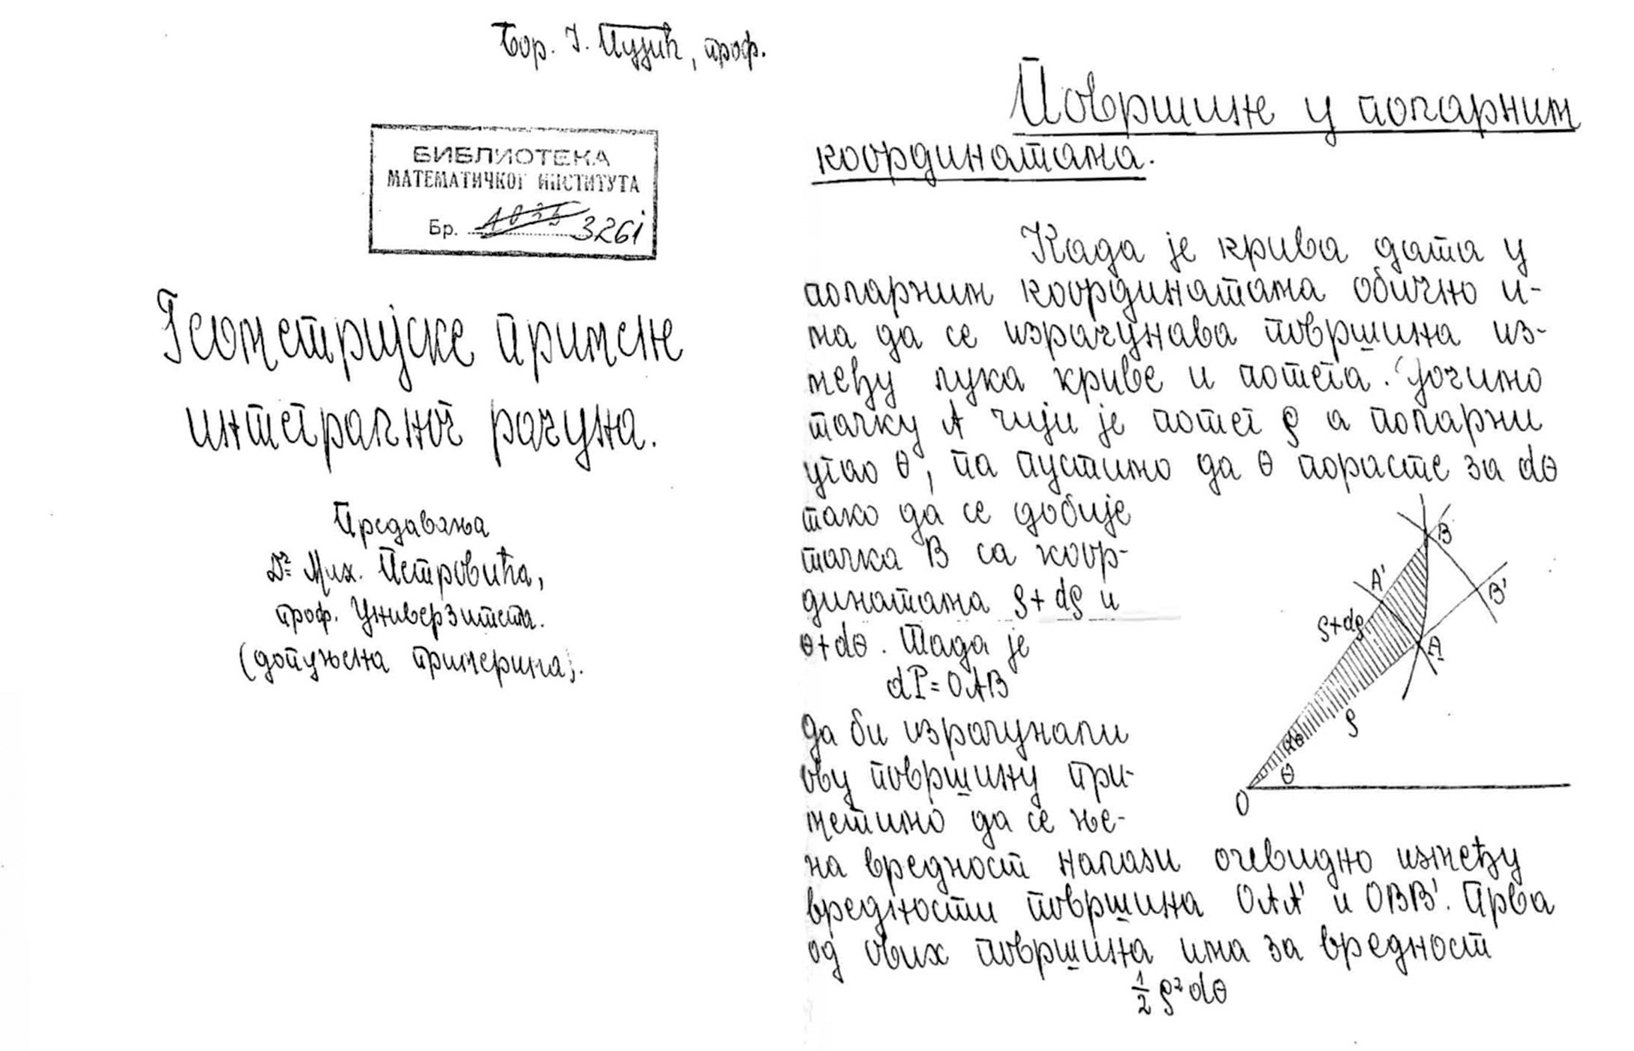 Бор. Ј. Пујић, проф.
БИБЛИОТЕКА
МАТЕМАТИЧКОГ ИНСТИТУТА
Бр. 1035 3261
Геометријске примене
интегралног рачуна.
Предавања
Др Мих. Петровића,
проф. Универзитета.
(допуњена примерима).
Површине у поларним
координатама.
Када је крива дата у
поларним координатама обично и-
ма да се израчунава површина из-
међу лука криве и потега. Уочимо
тачку А чији је потег ρ а поларни
угао θ, па пустимо да θ порасте за dθ
тако да се добије
тачка B са коор-
динатама ρ+dρ и
θ+dθ. Тада је
dP=OAB
да би израчунали
ову површину при-
метимо да се ње-
на вредност налази очевидно између
вредности површина OAA' и OBB'. Прва
од ових површина има за вредност
½ ρ² dθ
B
A'
B'
ρ+dρ
A
ρ
dθ
θ
O